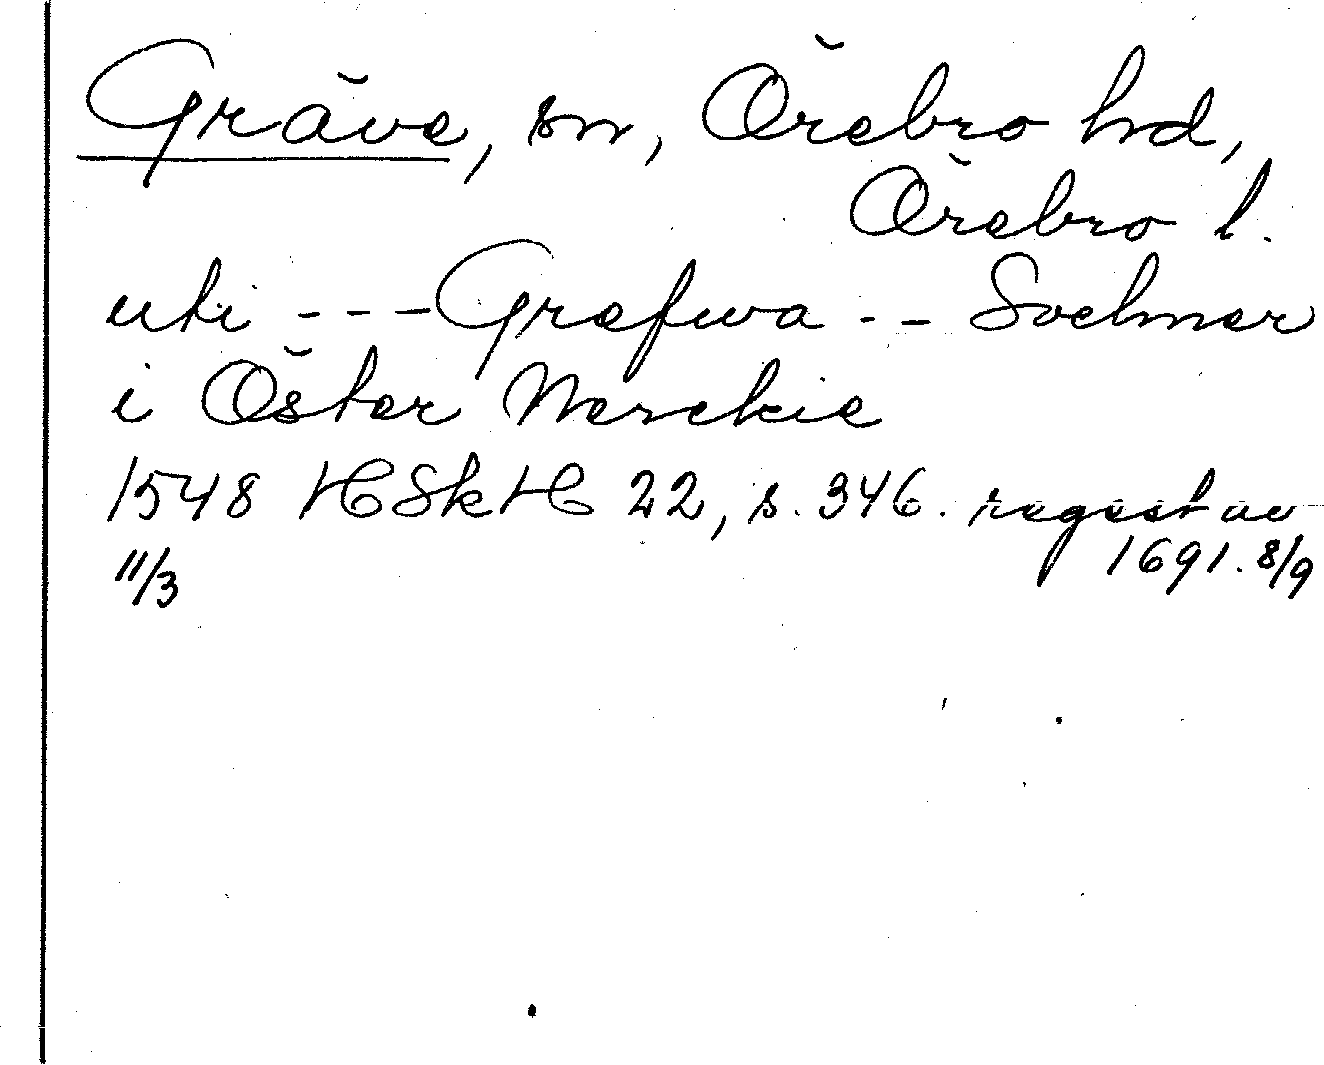 Gräve, sn, Örebro hd,
Örebro l.
uti --- Grefwa -- Sochnar
i Öster Nerckie
1548 HSkH 22, s. 346. regest av
11/3 1691. 8/9